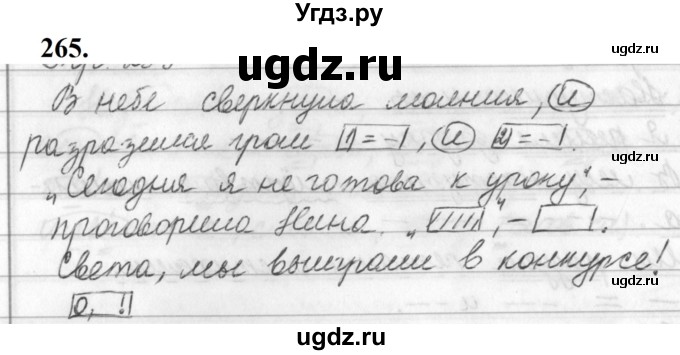 Угдз.ру
ugdz.ru
265.
ugdz.ru
В небе сверкнула молния, и
разразился гром [1 = –], и [2 = –].
ugdz.ru
„Сегодня я не готова к уроку", –
проговорила Нина. „[////]", – [ ].
ugdz.ru
Света, мы выиграли в конкурсе!
[О, !]
ugdz.ru
ugdz.ru